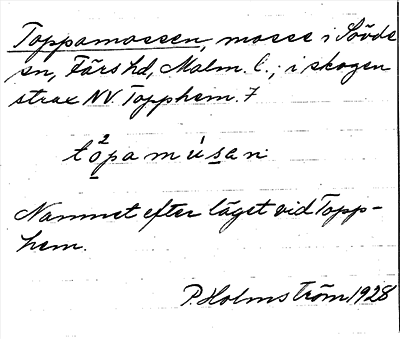 Toppamossen, mosse i Sövde
sn, Färs hd, Malm. l.; i skogen
strax NV. Topphem. 7
tòpamúsan
Namnet efter läget vid Topp-
hem.
P. Holmström 1928